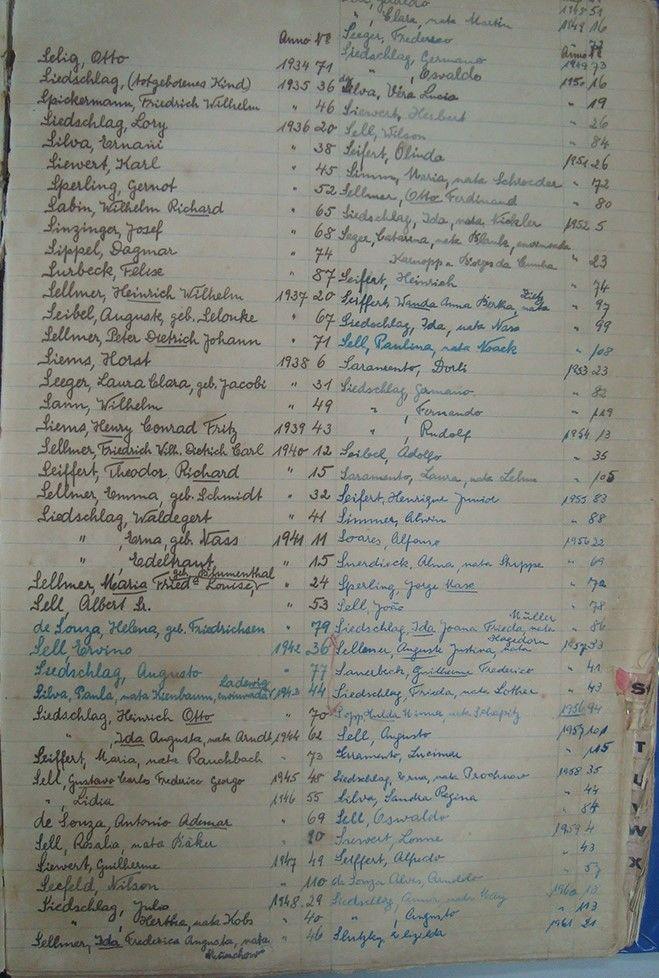 Anno No
Selig, Otto 1934 71
Siedschlag, (totgeborenes Kind) 1935 36
Spickermann, Friedrich Wilhelm " 46
Siedschlag, Lory 1936 20
Silva, Ernani " 38
Siewert, Karl " 45
Sperling, Gernot " 52
Sabin, Wilhelm Richard " 65
Sinzinger, Josef " 68
Sippel, Dagmar " 74
Surbeck, Felise " 87
Sellmer, Heinrich Wilhelm 1937 20
Seibel, Auguste, geb. Selonke " 67
Sellmer, Peter Dietrich Johann " 71
Siems, Horst 1938 6
Seeger, Laura Clara, geb. Jacobi " 31
Sann, Wilhelm " 49
Siems, Henry Conrad Fritz 1939 43
Sellmer, Friedrich Wilh. Dietrich Carl 1940 12
Seiffert, Theodor Richard " 15
Sellmer, Emma, geb. Schmidt " 32
Siedschlag, Waldegert " 41
" , Erna, geb. Nass 1941 11
" , Edeltraut " 15
geb. Blumenthal
Sellmer, Maria Fried Louise " 24
Sell, Albert Sr. " 53
de Souza, Helena, geb. Friedrichsen " 79
Sell Ervino 1942 36
Siedschlag, Augusto " 77
Silva, Paula, nata Kienbaum, Ladewig 1943 44
Siedschlag, Heinrich Otto " 70
" , Ida Augusta, nata Arndt 1944 62
Seiffert, Maria, nata Rauchbach " 73
Sell, Gustavo Carlos Frederico Georgo 1945 48
" , Lidia 1946 55
de Souza, Antonio Ademar " 69
Sell, Rosalia, nata Bäker " 90
Siewert, Guilherme 1947 49
Seefeld, Nilson " 110
Siedschlag, Julio 1948 29
" , Hertha, nata Kobs " 40
Sellmer, Ida Frederica Augusta, nata " 46
" , Clara, nata Martin 1949 16
Seeger, Frederico
Siedschlag, Germano 1949 73
" , Osvaldo 1950 16
da Silva, Vera Lucia " 19
Siewert, Herbert " 26
Sell, Wilson " 84
Seifert, Olinda 1951 26
Simm, Maria, nata Schroeder " 72
Sellmer, Otto Ferdinand " 80
Siedschlag, Ida, nata 1952 5
Seger, Catarina, nata
Karnopp Borges da Cunha " 23
Seifert, Heinrich " 74
Seiffert, Wanda Anna Bertha, nata " 97
Siedschlag, Ida, nata Nass " 99
Sell, Paulina, nata Noack " 108
Saramento, Dorli 1953 23
Siedschlag, Germano " 82
" , Fernando " 119
" , Rudolf 1954 13
Seibel, Adolfo " 35
Saramento, Laura, nata Lehm " 105
Seifert, Henrique Junior 1955 83
Simmer, Alwin " 88
Soares, Alfonso 1956 22
Suerdieck, Alma, nata " 69
Sperling, Jorge Hase
Sell, João " 78
Müller
Siedschlag, Ida Joana Frieda, nata " 86
Hagedorn
Sellmer, Auguste Justina, nata 1957 33
Sauerbeck, Guilherme Frederico " 41
Siedschlag, Frieda, nata " 43
Popp Hulda nata 1956 94
Sell, Augusto 1957 101
Sarramento, Lucimar " 115
Siedschlag, Erna, nata Prochnow 1958 35
Silva, Sandra Regina " 44
Sell, Oswaldo " 84
Siewert, Lonne 1959 4
Seiffert, Alfredo " 43
de Souza Alves, Arnoldo
Siedschlag, nata
" , Augusto " 113
1961 21
S
T
U
W
X